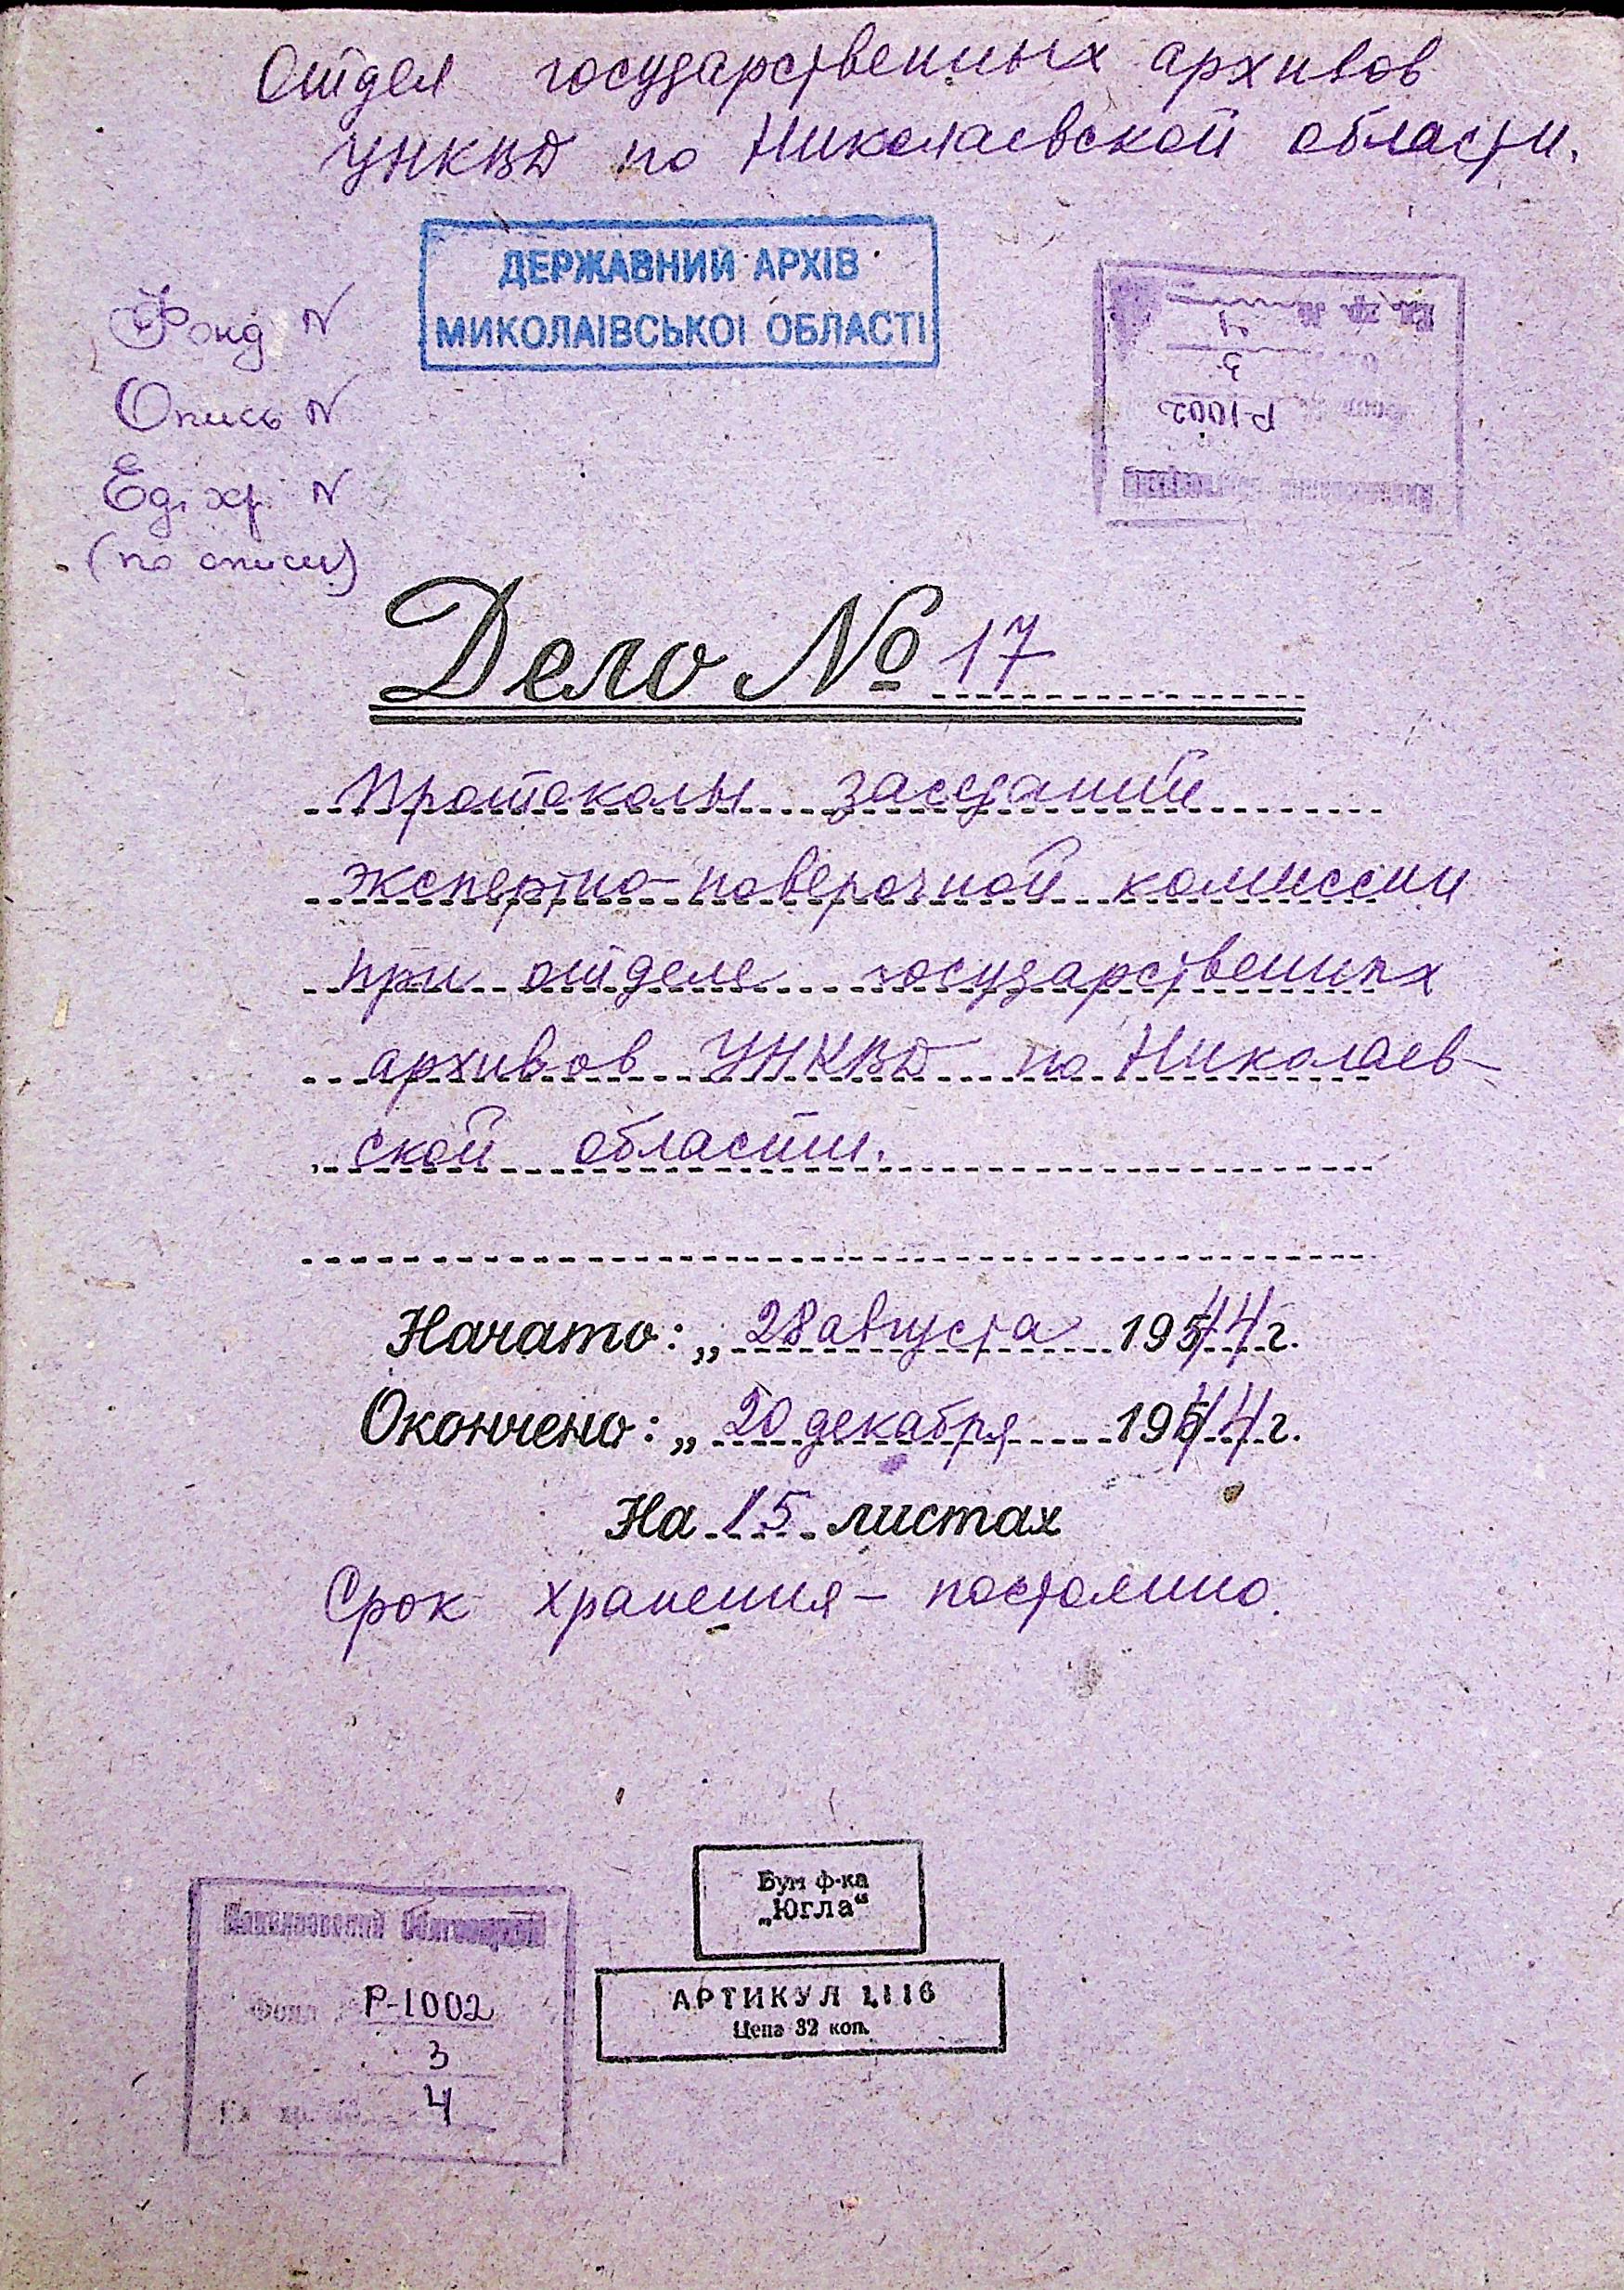 Отдел государственных архивов
УНКВД по Николаевской области.
ДЕРЖАВНИЙ АРХІВ
МИКОЛАІВСЬКОІ ОБЛАСТІ
Р-1002
3
4
Фонд N
Опись N
Ед. хр. N
(по описи)
Дело № 17
Протоколы заседаний
экспертно-поверочной комиссии
при отделе государственных
архивов УНКВД по Николаев-
ской области.
Начато: „ 28 августа 1944 г.
Окончено: „ 20 декабря 1944 г.
На 15 листах
Срок хранения – постоянно.
Бум ф-ка
„Югла“
АРТИКУЛ 1116
Цена 32 коп.
Фонд Р-1002
3
хр. № 4